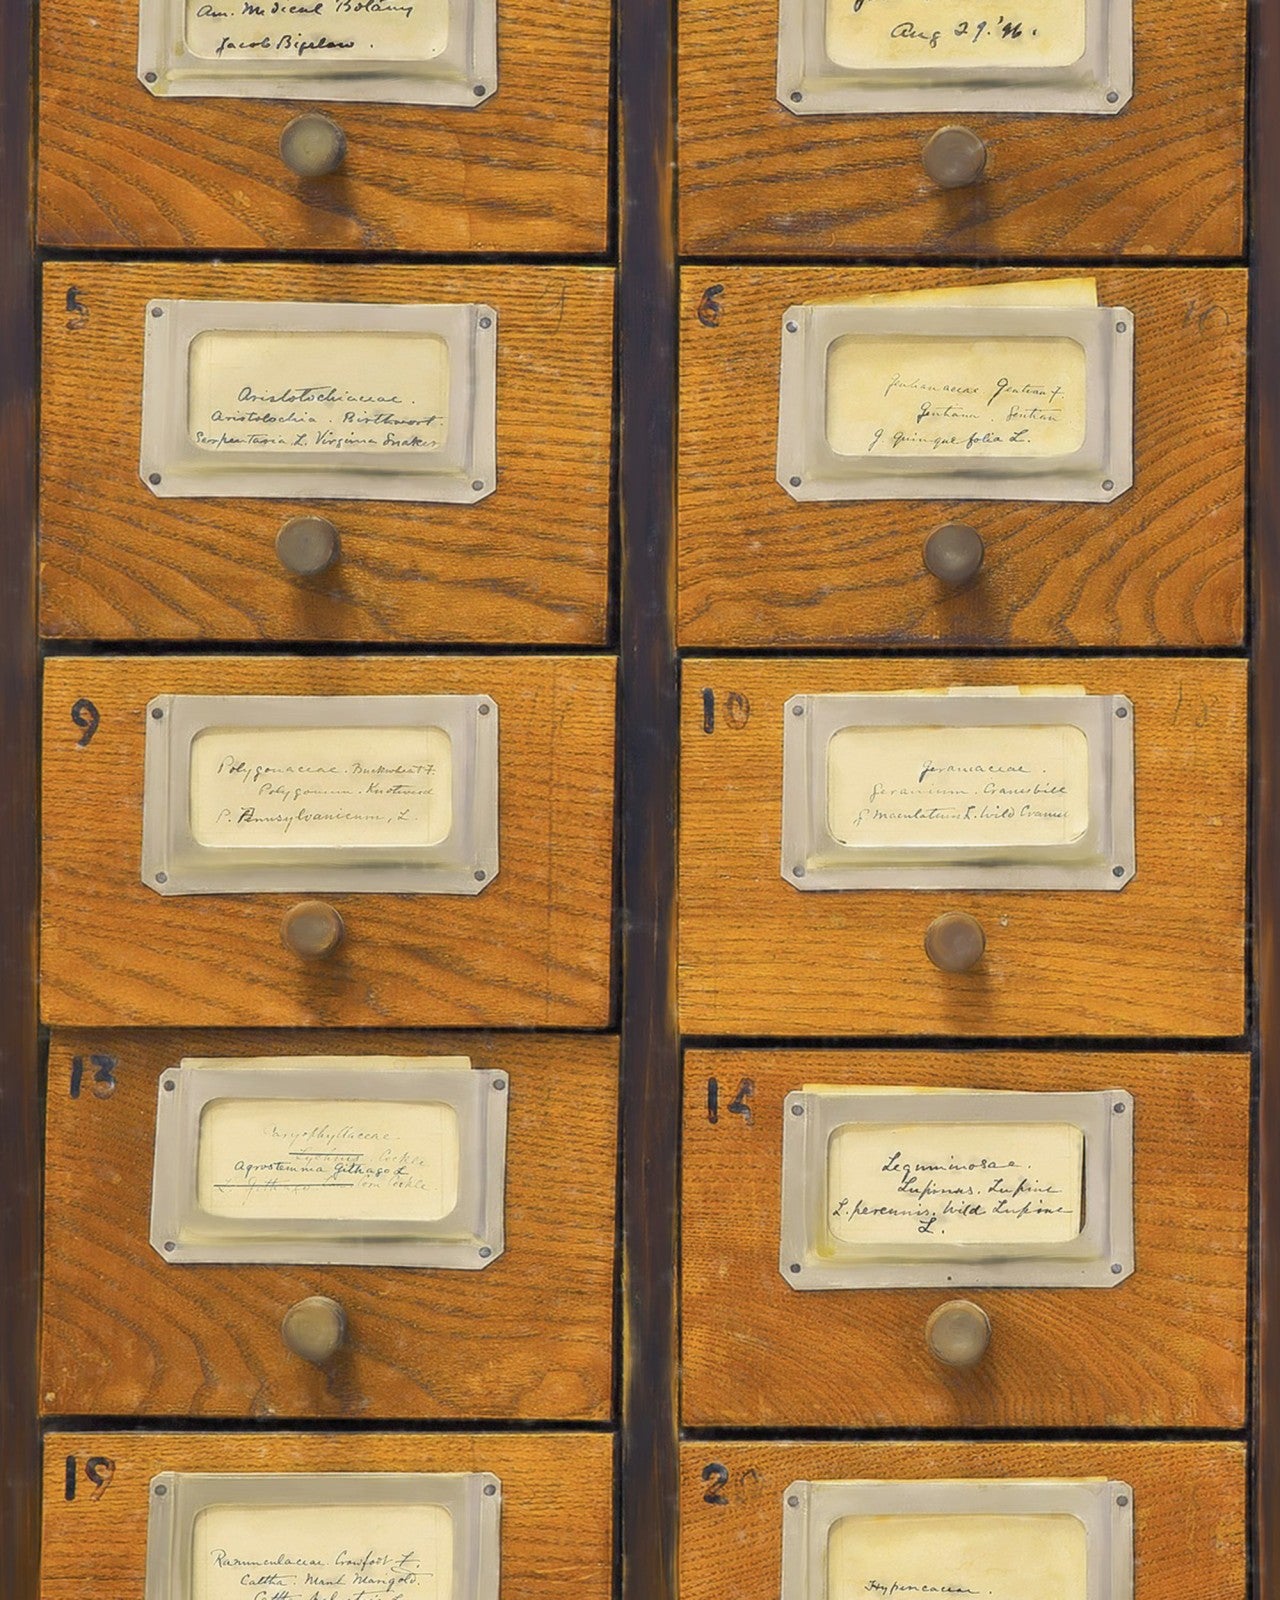 Am. Medical Botany
Jacob Bigelow.
Aug 29. '96.
5
Aristolochiaceae.
Aristolochia. Birthwort.
Serpentaria L. Virginia Snaker
6
Gentianaceae Gentian F.
Gentiana Gentian
G. quinquefolia L.
9
Polygonaceae. Buckwheat F.
Polygonum. Knotweed
P. Pennsylvanicum, L.
10
Geraniaceae.
Geranium. Cranesbill
G maculatum L. Wild Cranes
13
Caryophyllaceae.
Lychnis. Cockle
Agrostemma Githago L
L. Githago Corn Cockle.
14
Leguminosae.
Lupinus. Lupine
L. perennis. Wild Lupine
L.
19
Ranunculaceae. Crowfoot F.
Caltha. Marsh Marigold.
Caltha palustris L
20
Hypericaceae.